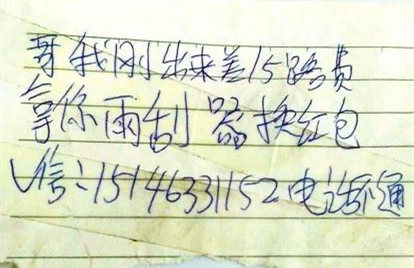 哥我刚出来差15路费
拿你雨刮器换红包
V信:15146331152电话不通